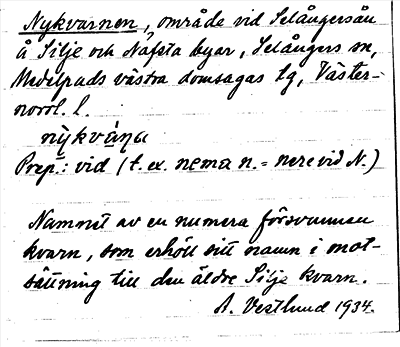 Nykvarnen, område vid Selångersån
å Silje och Näfsta byar, Selångers sn,
Medelpads västra domsagas tg, Väster-
norrl. l.
nỳkvàṇa
Prep.: vid (t. ex. nema n. = nere vid N.)
Namnet av en numera försvunnen
kvarn, som erhöll sitt namn i mot-
sättning till den äldre Silje kvarn.
A. Vestlund 1934.